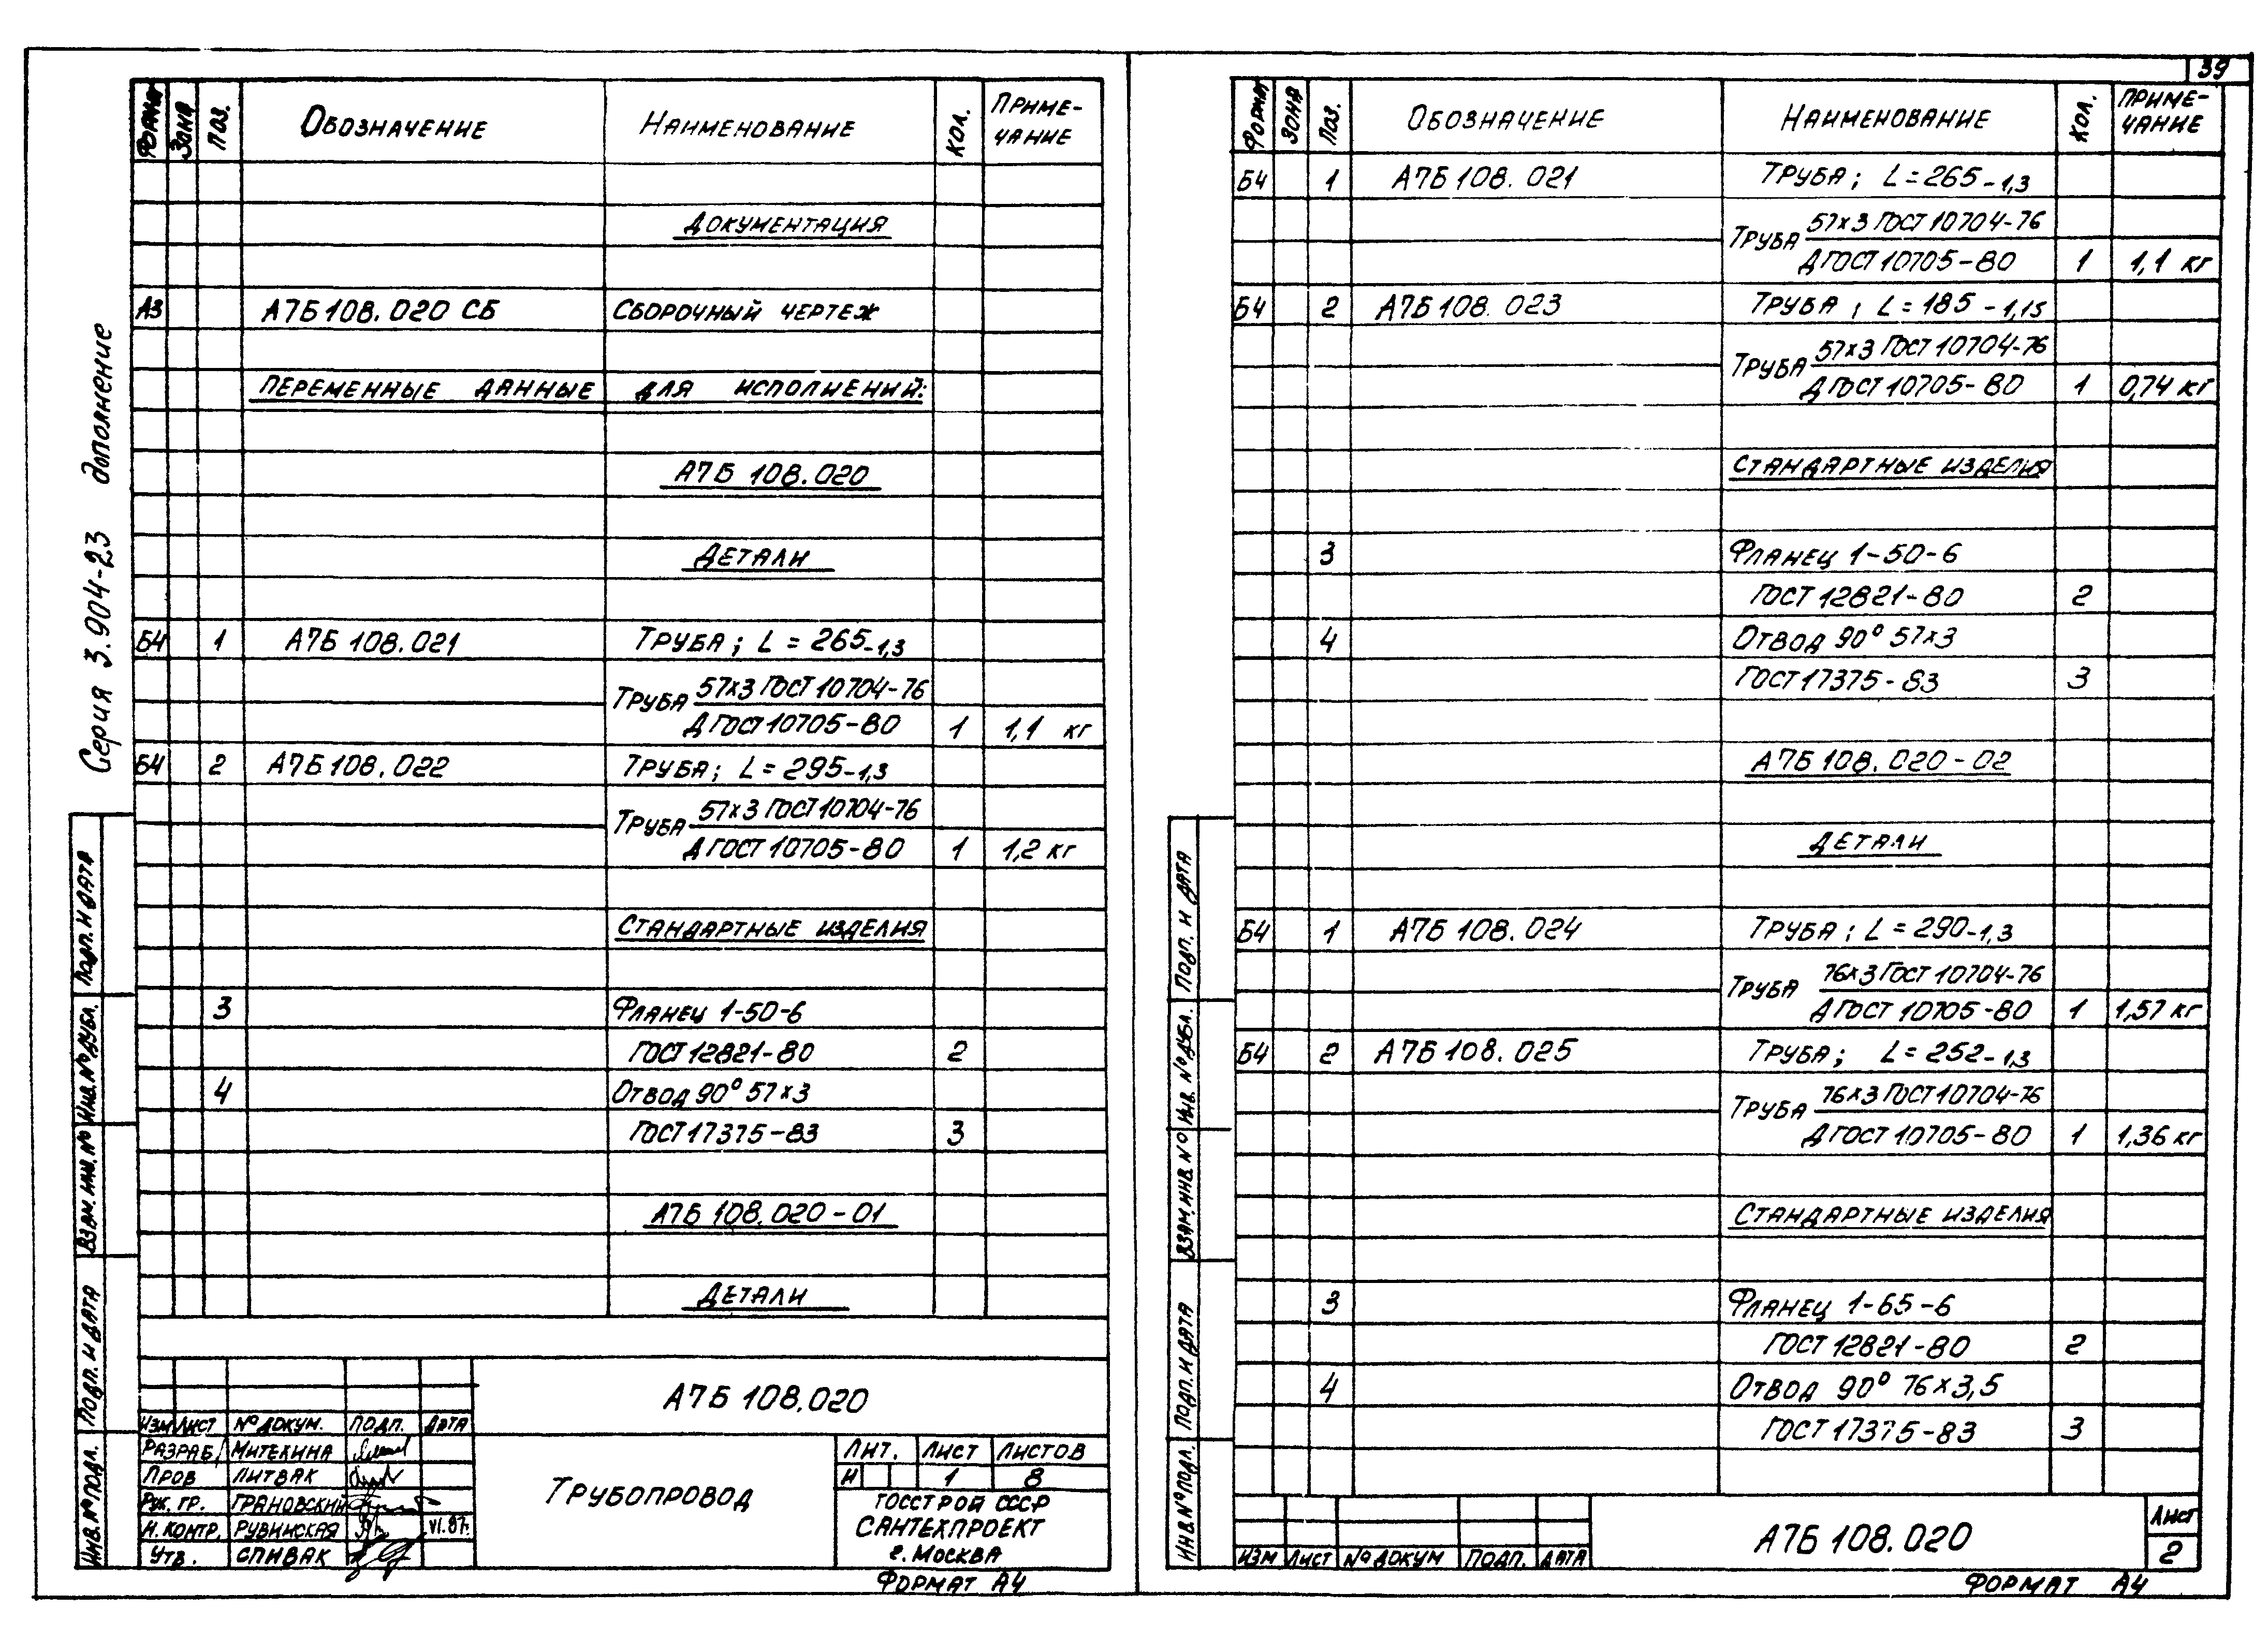 39
Серия 3.904-23 дополнение
Формат Зона Поз. Обозначение Наименование Кол. Приме-
чание
Документация
А3 А7Б108.020 СБ Сборочный чертеж
Переменные данные для исполнений:
А7Б 108.020
Детали
Б4 1 А7Б 108.021 Труба; L = 265-1,3
Труба 57х3 ГОСТ 10704-76
Д ГОСТ 10705-80 1 1,1 кг
Б4 2 А7Б 108.022 Труба; L = 295-1,3
Труба 57х3 ГОСТ 10704-76
Д ГОСТ 10705-80 1 1,2 кг
Стандартные изделия
3 Фланец 1-50-6
ГОСТ 12821-80 2
4 Отвод 90° 57х3
ГОСТ 17375-83 3
А7Б 108.020-01
Детали
Подп. и дата
Инв. № дубл.
Взам. инв. №
Подп. и дата
Инв. № подл.
А7Б 108.020
Изм Лист № докум. Подп. Дата
Разраб. Митехина
Пров Литвак
Рук. гр. Грановский
Н. контр. Рувинская VI.87г.
Утв. Спивак
Трубопровод
Лит. Лист Листов
И 1 8
Госстрой СССР
Сантехпроект
г. Москва
Формат А4
Формат Зона Поз. Обозначение Наименование Кол. Приме-
чание
Б4 1 А7Б 108.021 Труба; L = 265-1,3
Труба 57х3 ГОСТ 10704-76
Д ГОСТ 10705-80 1 1,1 кг
Б4 2 А7Б 108.023 Труба; L = 185-1,15
Труба 57х3 ГОСТ 10704-76
Д ГОСТ 10705-80 1 0,74 кг
Стандартные изделия
3 Фланец 1-50-6
ГОСТ 12821-80 2
4 Отвод 90° 57х3
ГОСТ 17375-83 3
А7Б 108.020-02
Детали
Б4 1 А7Б 108.024 Труба; L = 290-1,3
Труба 76х3 ГОСТ 10704-76
Д ГОСТ 10705-80 1 1,57 кг
Б4 2 А7Б 108.025 Труба; L = 252-1,3
Труба 76х3 ГОСТ 10704-76
Д ГОСТ 10705-80 1 1,36 кг
Стандартные изделия
3 Фланец 1-65-6
ГОСТ 12821-80 2
4 Отвод 90° 76х3,5
ГОСТ 17375-83 3
Подп. и дата
Инв. № дубл.
Взам. инв. №
Подп. и дата
Инв. № подл.
Изм Лист № докум Подп. Дата
А7Б 108.020
Лист
2
Формат А4